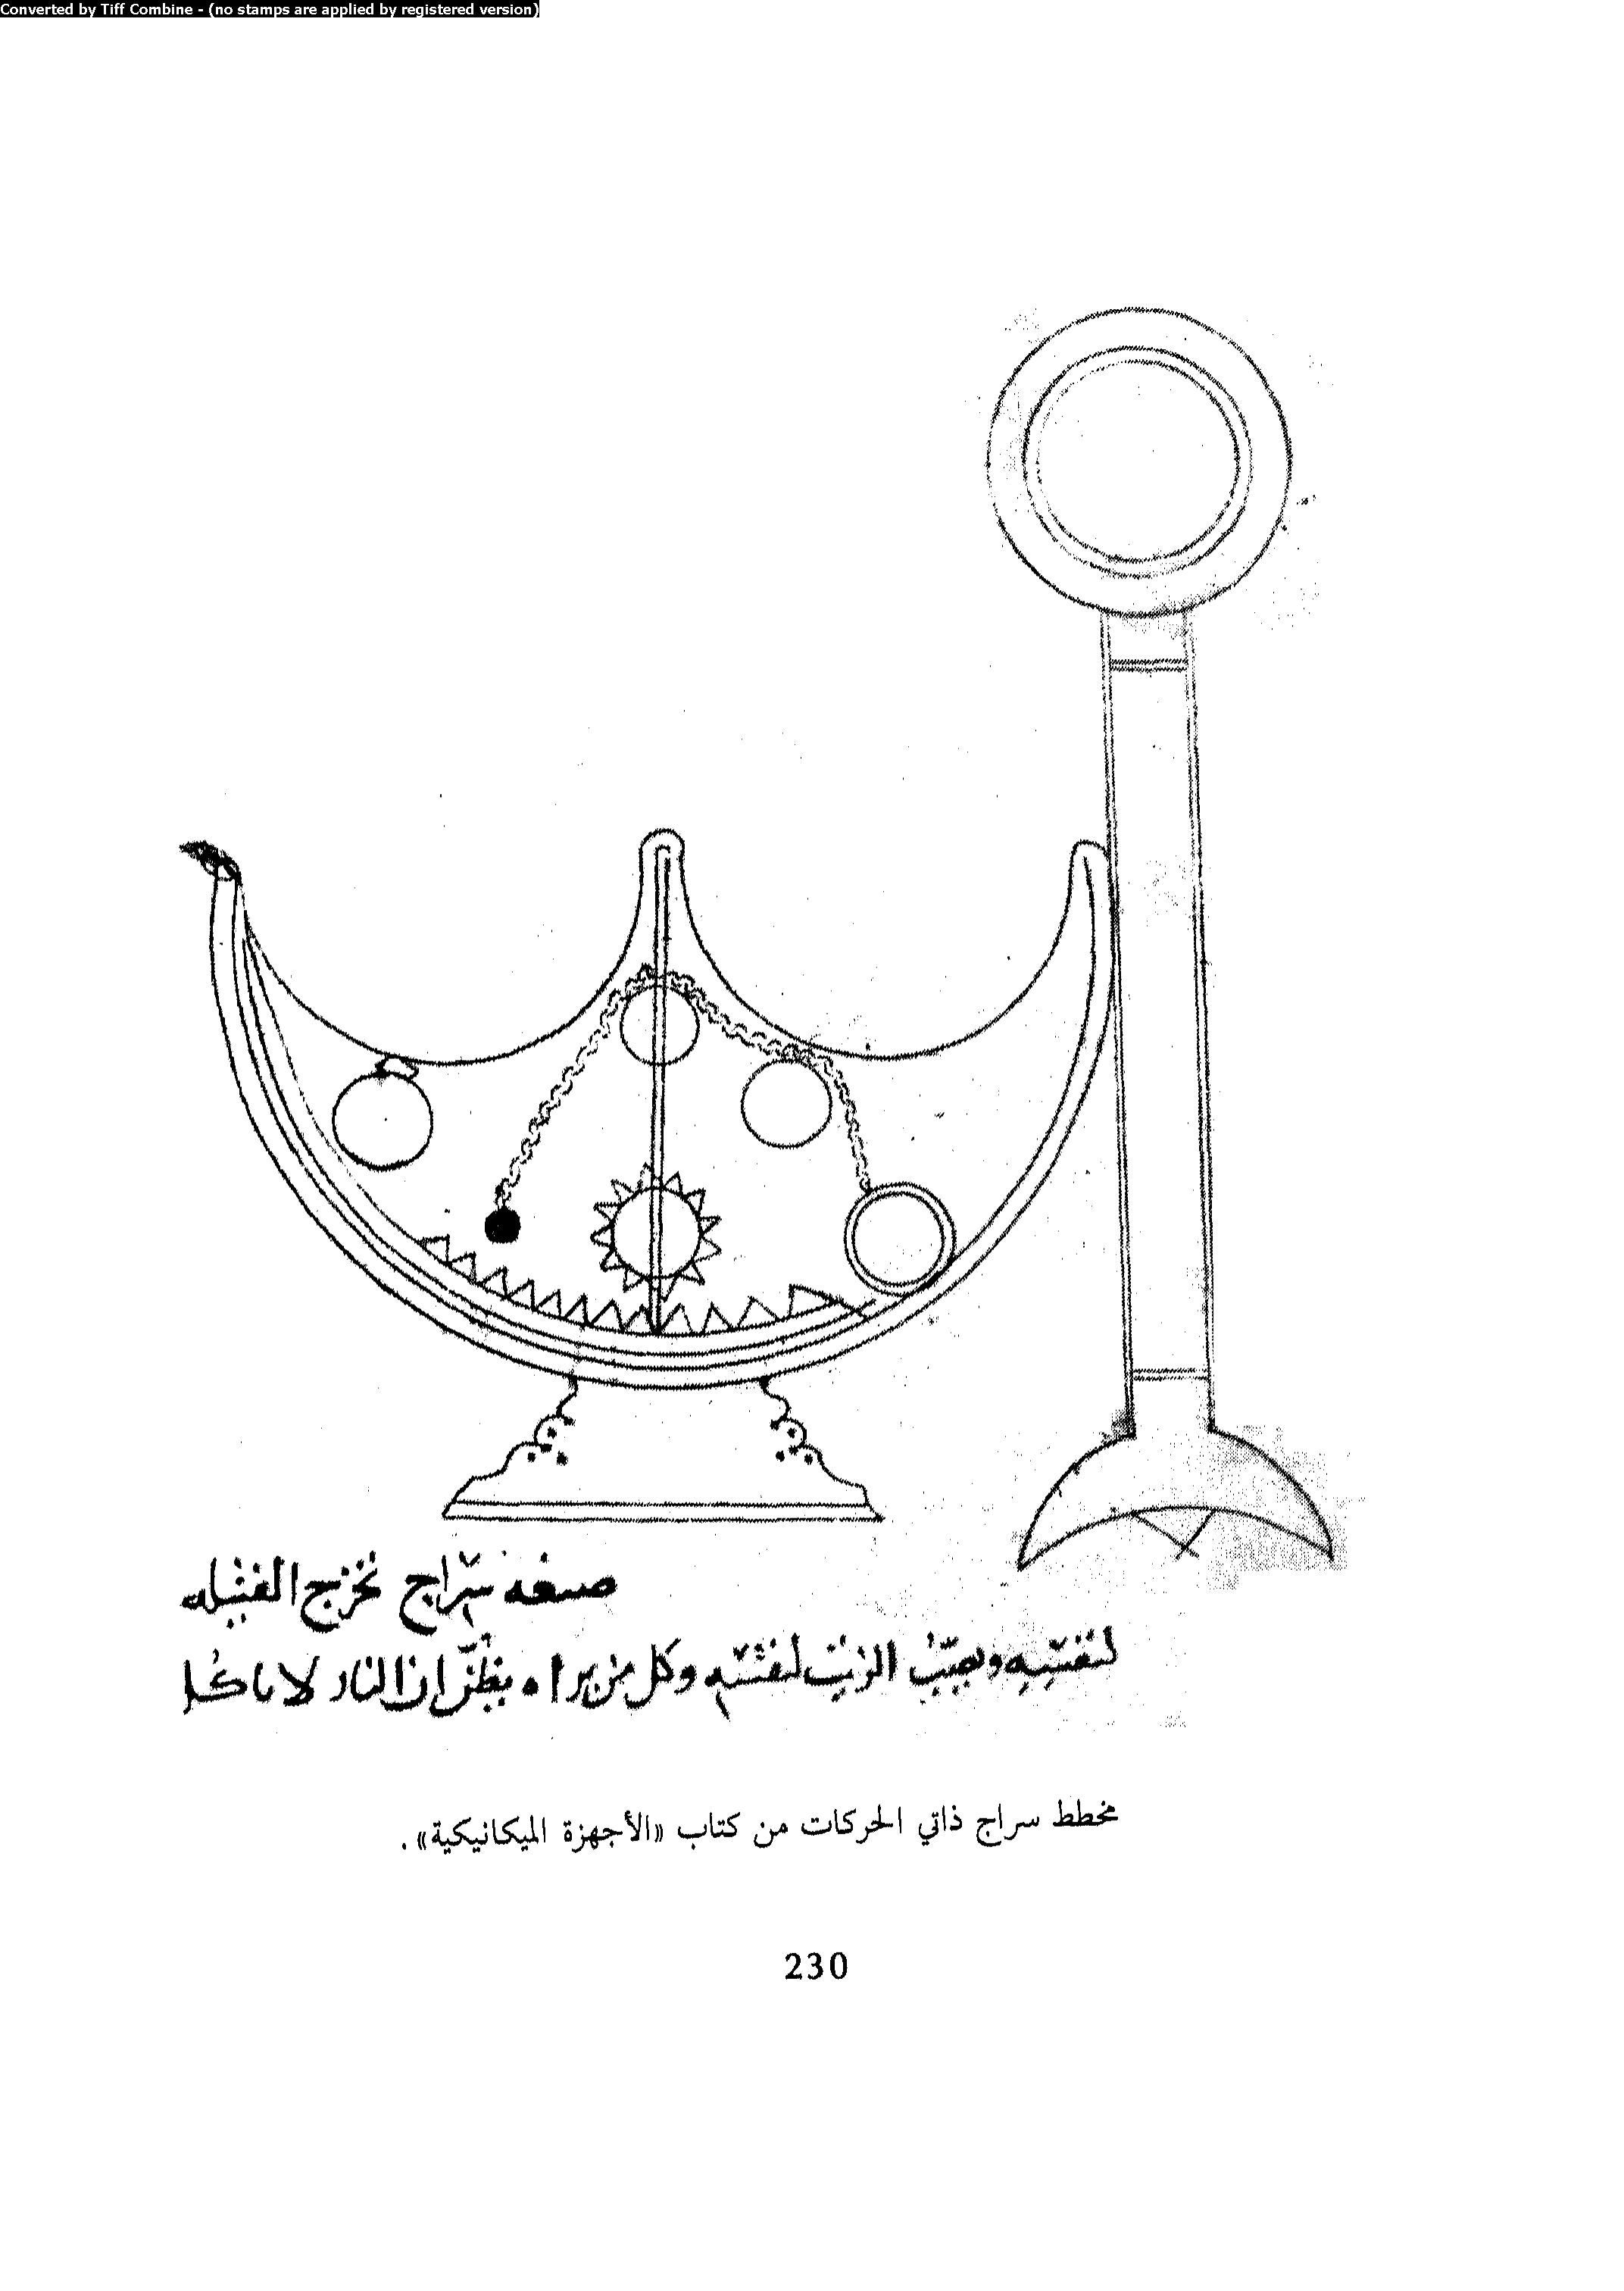 Converted by Tiff Combine - (no stamps are applied by registered version)
صنعه سراج تخرج الفتيله
لنفسه ويصب الزيت لنفسه وكل من يراه يظن ان النار لا تاكل
مخطط سراج ذاتي الحركات من كتاب «الأجهزة الميكانيكية» .
230